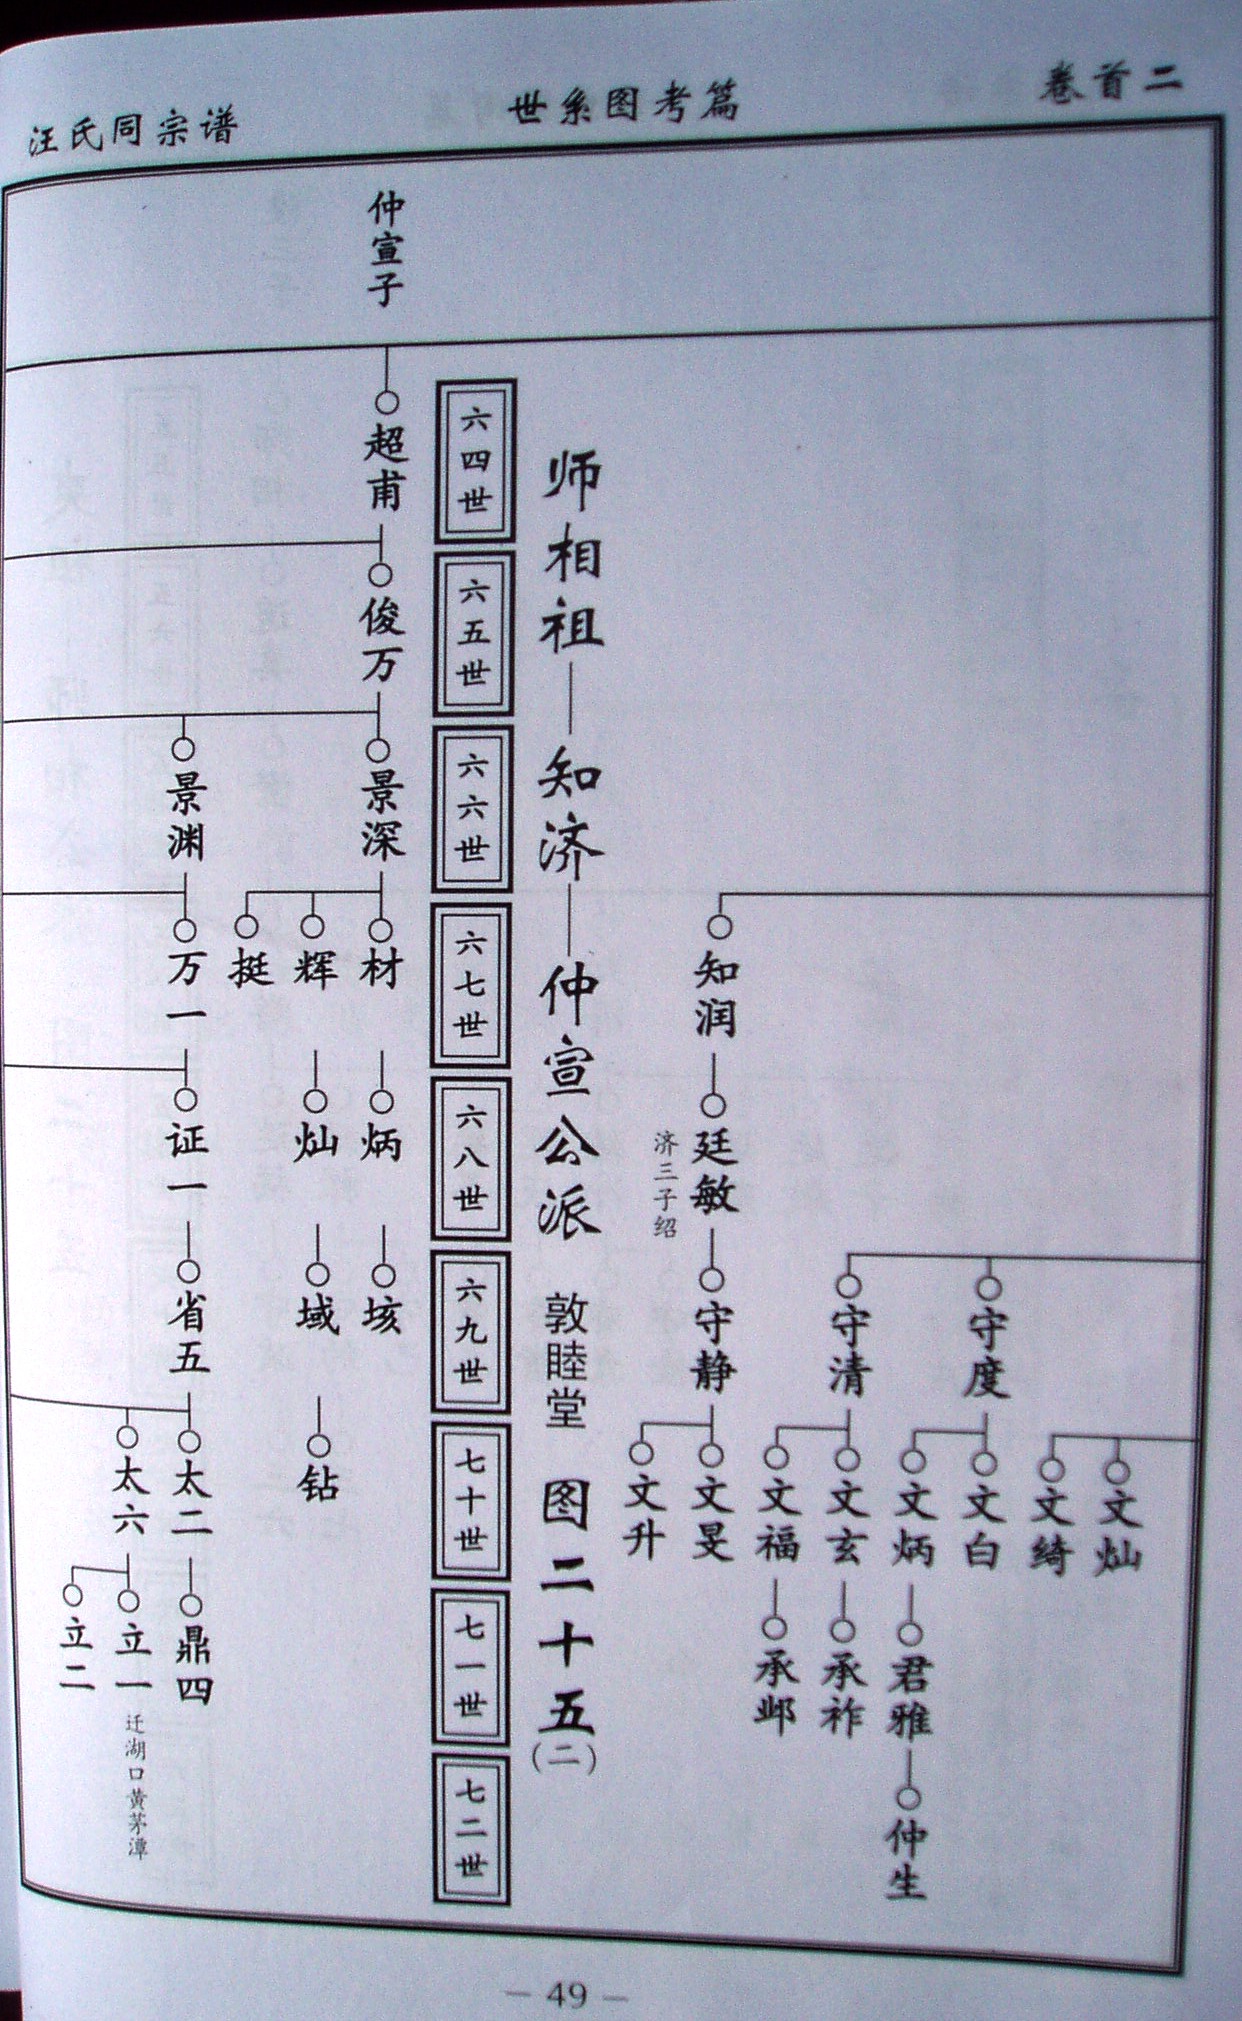 卷首二
世系图考篇
汪氏同宗谱
知润
廷敏
济三子绍
守度
守清
守静
文灿
文绮
文白
文炳
文玄
文福
文旻
文升
君雅
承祚
承邺
仲生
师相祖—知济—仲宣公派 敦睦堂 图二十五(二)
六四世
六五世
六六世
六七世
六八世
六九世
七十世
七一世
七二世
仲宣子
超甫
俊万
景深
景渊
材
辉
挺
万一
炳
灿
证一
垓
域
省五
钻
太二
太六
鼎四
立一
迁湖口黄茅潭
立二
— 49 —